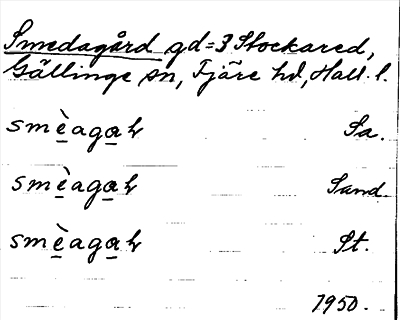 Smedagård gd=3 Stockared,
Gällinge sn, Fjäre hd, Hall. l.
smè̱aga̱ɽ Sa.
smè̱aga̱ɽ Sand
smè̱aga̱ɽ St.
1950.